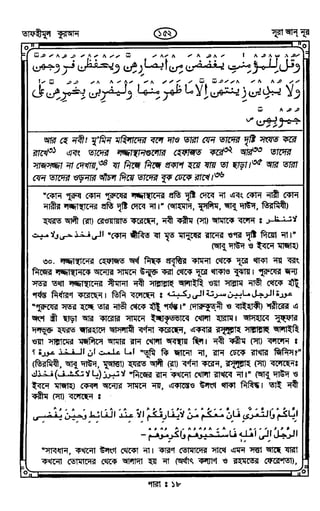 তাফহীমুল কুরআন
১৫২
সূরা আন নূর
وقل للمؤمنت يغضضن من ابصارهن ويحفظن فروجهن
ولا يبدين زينتهن الا ما ظهر منها وليضربن بخمرهن على
جيوبهن ص
আর হে নবী! মু'মিন মহিলাদের বলে দাও তারা যেন তাদের দৃষ্টি সংযত করে
রাখে এবং তাদের লজ্জাস্থানগুলোর হেফাজত করে আর তাদের
সাজসজ্জা না দেখায়, যা নিজে নিজে প্রকাশ হয়ে যায় তা ছাড়া। আর তারা
যেন তাদের ওড়নার আঁচল দিয়ে তাদের বুক ঢেকে রাখে।
"কোন পুরুষ কোন পুরুষের লজ্জাস্থানের প্রতি দৃষ্টি দেবে না এবং কোন নারী কোন
নারীর লজ্জাস্থানের প্রতি দৃষ্টি দেবে না।" (আহমাদ, মুসলিম, আবু দাউদ, তিরমিযী)
হযরত আলী (রা) রেওয়ায়াত করেছেন, নবী করীম (সা) আমাকে বলেন : لا تنظر
الى فخذ حى ولا ميت "কোন জীবিত বা মৃত মানুষের রানের ওপর দৃষ্টি দিয়ো না।"
(আবু দাউদ ও ইবনে মাজাহ)
৩০. লজ্জাস্থানের হেফাজত অর্থ নিছক প্রবৃত্তির কামনা থেকে দূরে থাকা নয় বরং
নিজের লজ্জাস্থানকে অন্যের সামনে উন্মুক্ত করা থেকে দূরে থাকাও বুঝায়। পুরুষের জন্য
সতর তথা লজ্জাস্থানের সীমানা নবী সাল্লাল্লাহু আলাইহি ওয়া সাল্লাম নাভী থেকে হাঁটু
পর্যন্ত নির্ধারণ করেছেন। তিনি বলেছেন : عورة الرجل ما بين سرته الى ركبته
"পুরুষের সতর হচ্ছে তার নাভী থেকে হাঁটু পর্যন্ত।" (দারুকুত্নী ও বাইহাকী) শরীরের এ
অংশ স্ত্রী ছাড়া আর কারোর সামনে ইচ্ছাকৃতভাবে খোলা হারাম। আসহাবে সুফ্ফার
দলভুক্ত হযরত জারহাদে আসলামী বর্ণনা করেছেন, একবার রসূলুল্লাহ সাল্লাল্লাহু আলাইহি
ওয়া সাল্লামের মজলিসে আমার রান খোলা অবস্থায় ছিল। নবী করীম (সা) বললেন :
اما علمت ان الفخذ عورة ؟ "তুমি কি জানো না, রান ঢেকে রাখার জিনিস?"
(তিরমিযী, আবু দাউদ, মুআত্তা) হযরত আলী (রা) বর্ণনা করেন, রসূলুল্লাহ (সা) বলেছেন:
لا تبرز (يا لا تكشف) فخذك "নিজের রান কখনো খোলা রাখবে না।" (আবু দাউদ ও
ইবনে মাজাহ) কেবল অন্যের সামনে নয়, একান্তেও উলংগ থাকা নিষিদ্ধ। তাই নবী
করীম (সা) বলেছেন :
اياكم والتعرى فان معكم من لا يفارقكم الا عند الغائط وحين يفضى
الرجل الى اهله فاستحيوهم واكرموهم -
"সাবধান, কখনো উলংগ থেকো না। কারণ তোমাদের সাথে এমন সত্তা আছে যারা
কখনো তোমাদের থেকে আলাদা হয় না (অর্থাৎ কল্যাণ ও রহমতের ফেরেশতা),
পারা : ১৮